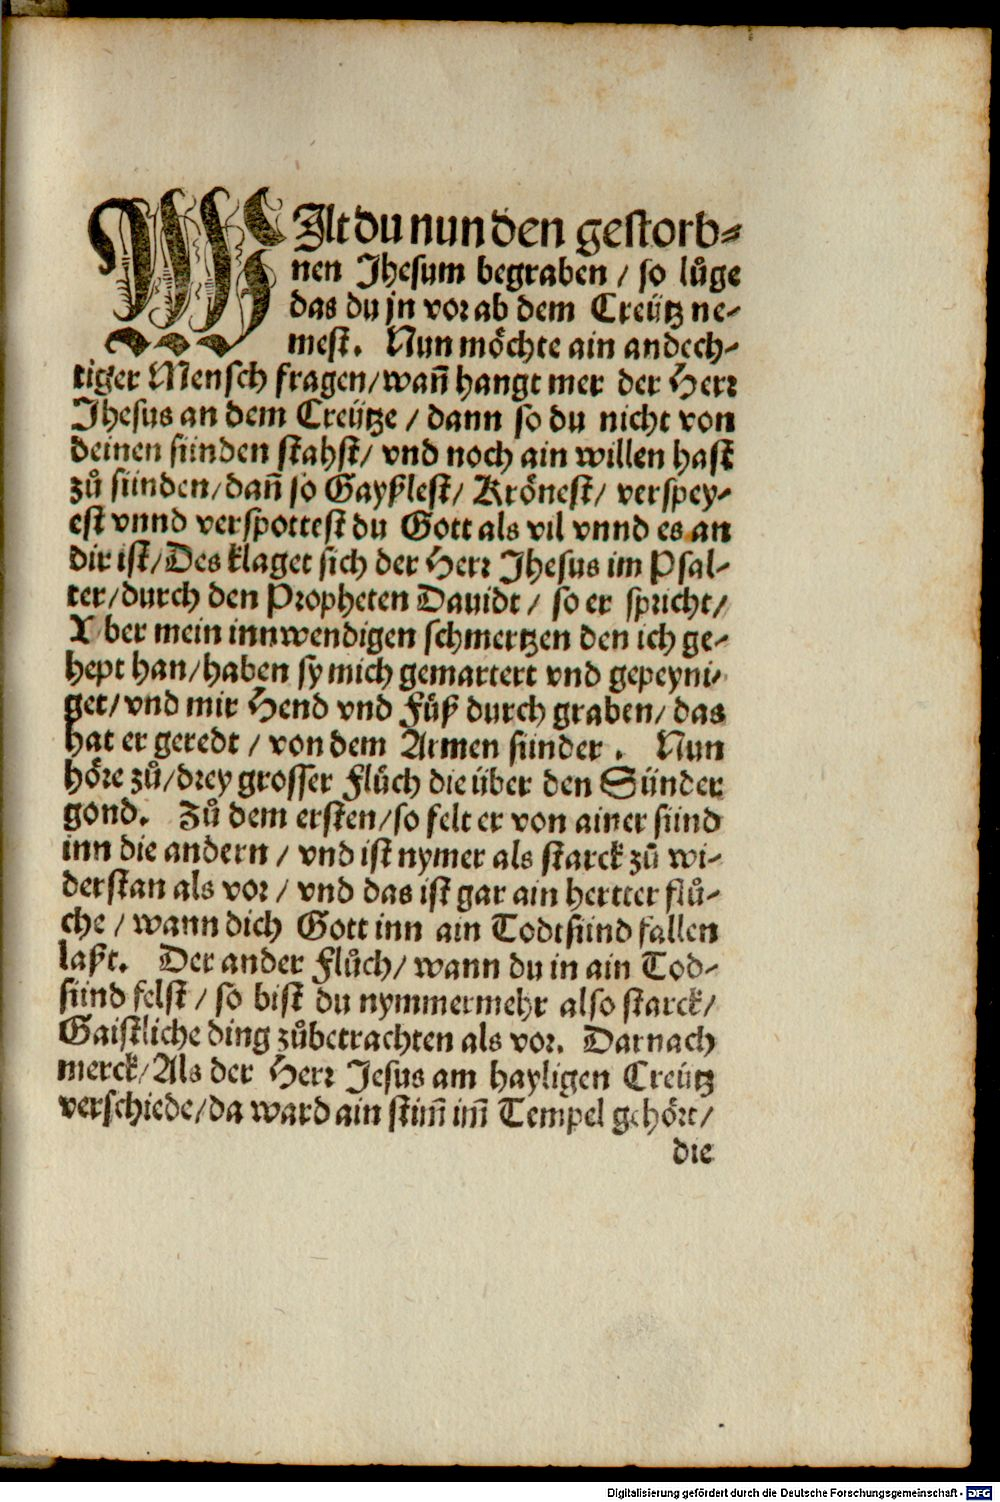 WIlt du nun den gestorb-
nen Jhesum begraben / so lůge
das du jn vor ab dem Creütz ne-
mest. Nun möchte ain andech-
tiger Mensch fragen/wañ hangt mer der Herr
Jhesus an dem Creütze / dann so du nicht von
deinen sünden stahst/ vnd noch ain willen hast
zů sünden/dañ so Gayßlest/ Krönest/ verspey-
est vnnd verspottest du Gott als vil vnnd es an
dir ist/Des klaget sich der Herr Jhesus im Psal-
ter/durch den Propheten Dauidt / so er spricht/
Vber mein innwendigen schmertzen den ich ge-
hept han/haben sy mich gemartert vnd gepeyni-
get/vnd mir Hend vnd Füß durch graben/das
hat er geredt / von dem Armen sünder . Nun
höre zů/drey grosser Flůch die über den Sünder
gond. Zů dem ersten/so felt er von ainer sünd
inn die andern / vnd ist nymer als starck zů wi-
derstan als vor / vnd das ist gar ain hertter flů-
che / wann dich Gott inn ain Todtsünd fallen
laßt. Der ander Flůch/ wann du in ain Tod-
sünd felst / so bist du nymmermehr also starck/
Gaistliche ding zůbetrachten als vor. Darnach
merck/Als der Herr Jesus am hayligen Creütz
verschiede/da ward ain stim̃ im̃ Tempel gehört/
die
Digitalisierung gefördert durch die Deutsche Forschungsgemeinschaft - DFG